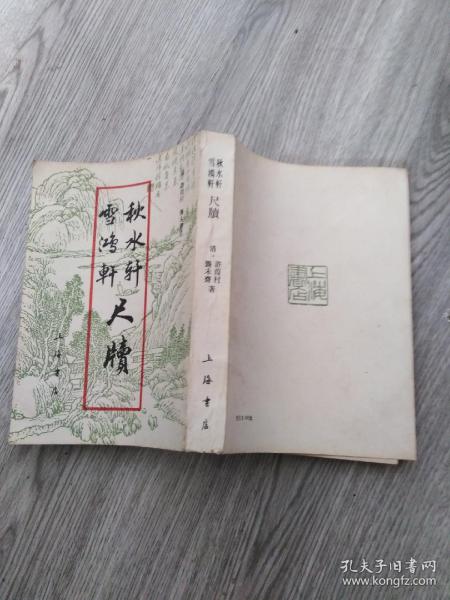 秋水轩
雪鸿轩
尺牍
上海书店
秋水軒
雪鴻軒
尺牘
清·許葭村
龔未齋著
上海书店
上海
書店
孔夫子旧书网
www.kongfz.com